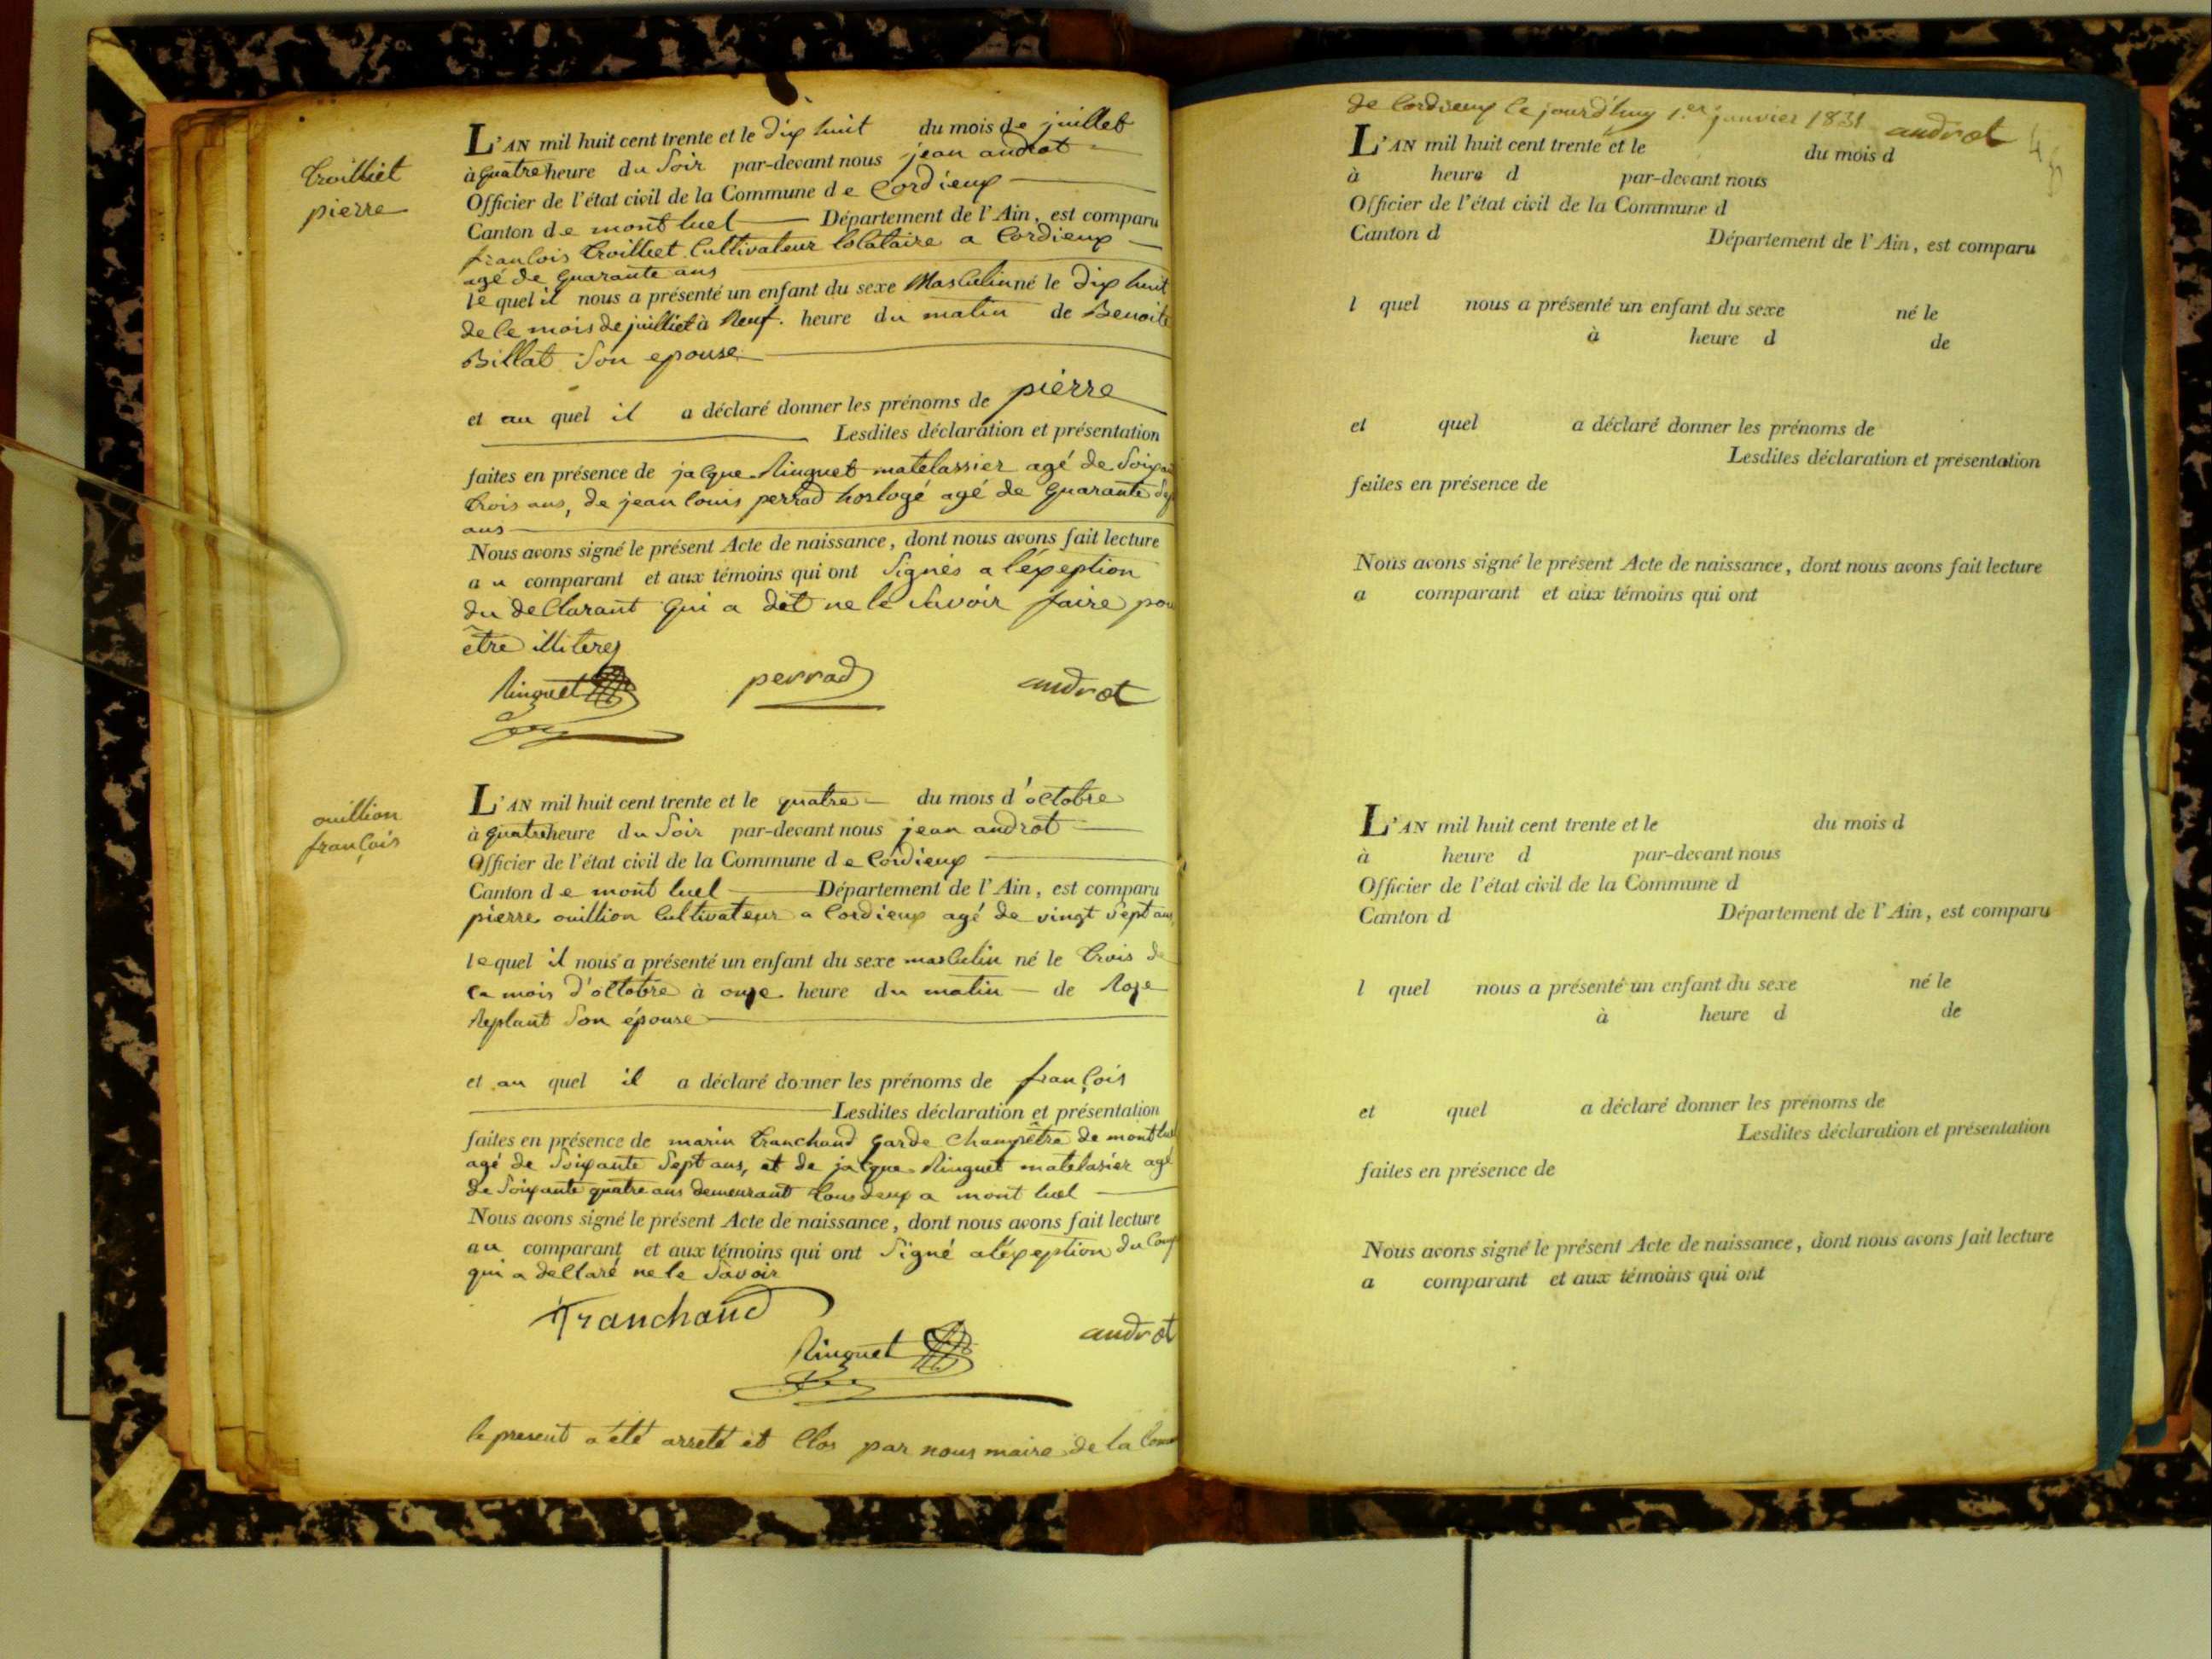 troilliet
pierre
L'AN mil huit cent trente et le dix huit du mois de juillet
à quatre heure du soir par-devant nous jean androt
Officier de l'état civil de la Commune de Cordieux
Canton de mont luel Département de l'Ain, est comparu
francois troilliet Cultivateur locataire a Cordieux
agé de quarante ans
lequel il nous a présenté un enfant du sexe Masculin né le dix huit
de ce mois de juilliet à Neuf heure du matin de Benoite
Billat son epouse
et au quel il a déclaré donner les prénoms de pierre
Lesdites déclaration et présentation
faites en présence de jacque Ringuet matelassier agé de soixante
trois ans, de jean louis perrad horlogé agé de quarante
ans
Nous avons signé le présent Acte de naissance, dont nous avons fait lecture
au comparant et aux témoins qui ont signés a l'éxeption
du declarant qui a dit ne le savoir faire pou
être illiteré
Ringuet perrad androt
ouillion
françois
L'AN mil huit cent trente et le quatre du mois d'octobre
à quatre heure du soir par-devant nous jean androt
Officier de l'état civil de la Commune de Cordieux
Canton de mont luel Département de l'Ain, est comparu
pierre ouillion Cultivateur a Cordieux agé de vingt sept ans
lequel il nous a présenté un enfant du sexe masculin né le trois de
ce mois d'octobre à onze heure du matin de Roze
Replant son épouse
et au quel il a déclaré donner les prénoms de françois
Lesdites déclaration et présentation
faites en présence de marin tranchand garde champêtre de montluel
agé de soixante sept ans, et de jacque Ringuet matelasier agé
de soixante quatre ans demeurant tous deux a mont luel
Nous avons signé le présent Acte de naissance, dont nous avons fait lecture
au comparant et aux témoins qui ont signé a l'éxeption du Comp
qui a declaré ne le savoir
Tranchand
Ringuet androt
le present a été arreté et Clos par nous maire de la Comm
de Cordieux le jourd'huy 1.er janvier 1831 androt
L'AN mil huit cent trente et le du mois d
à heure d par-devant nous
Officier de l'état civil de la Commune d
Canton d Département de l'Ain, est comparu
l quel nous a présenté un enfant du sexe né le
à heure d de
et quel a déclaré donner les prénoms de
Lesdites déclaration et présentation
faites en présence de
Nous avons signé le présent Acte de naissance, dont nous avons fait lecture
a comparant et aux témoins qui ont
L'AN mil huit cent trente et le du mois d
à heure d par-devant nous
Officier de l'état civil de la Commune d
Canton d Département de l'Ain, est comparu
l quel nous a présenté un enfant du sexe né le
à heure d de
et quel a déclaré donner les prénoms de
Lesdites déclaration et présentation
faites en présence de
Nous avons signé le présent Acte de naissance, dont nous avons fait lecture
a comparant et aux témoins qui ont